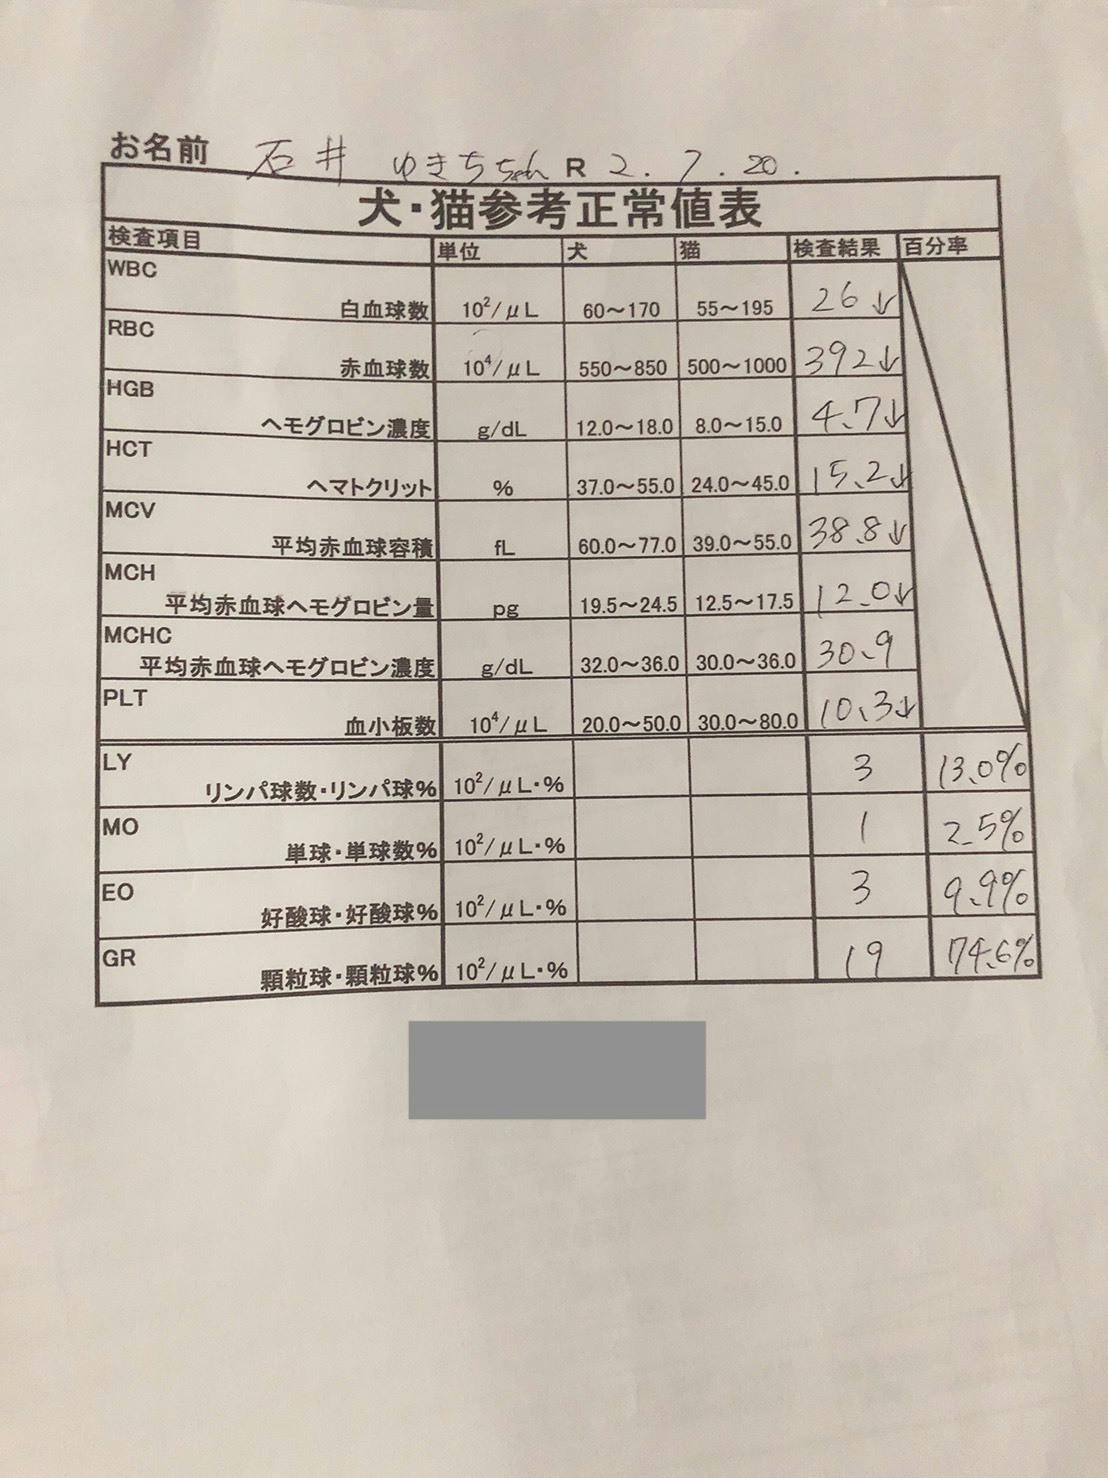 お名前 石井 ゆきちちゃん R 2. 7. 20.
犬・猫参考正常値表
検査項目 単位 犬 猫 検査結果 百分率
WBC
白血球数 10²/μL 60～170 55～195 26↓
RBC
赤血球数 10⁴/μL 550～850 500～1000 392↓
HGB
ヘモグロビン濃度 g/dL 12.0～18.0 8.0～15.0 4.7↓
HCT
ヘマトクリット % 37.0～55.0 24.0～45.0 15.2↓
MCV
平均赤血球容積 fL 60.0～77.0 39.0～55.0 38.8↓
MCH
平均赤血球ヘモグロビン量 pg 19.5～24.5 12.5～17.5 12.0↓
MCHC
平均赤血球ヘモグロビン濃度 g/dL 32.0～36.0 30.0～36.0 30.9
PLT
血小板数 10⁴/μL 20.0～50.0 30.0～80.0 10.3↓
LY
リンパ球数・リンパ球% 10²/μL・% 3 13.0%
MO
単球・単球数% 10²/μL・% 1 2.5%
EO
好酸球・好酸球% 10²/μL・% 3 9.9%
GR
顆粒球・顆粒球% 10²/μL・% 19 74.6%